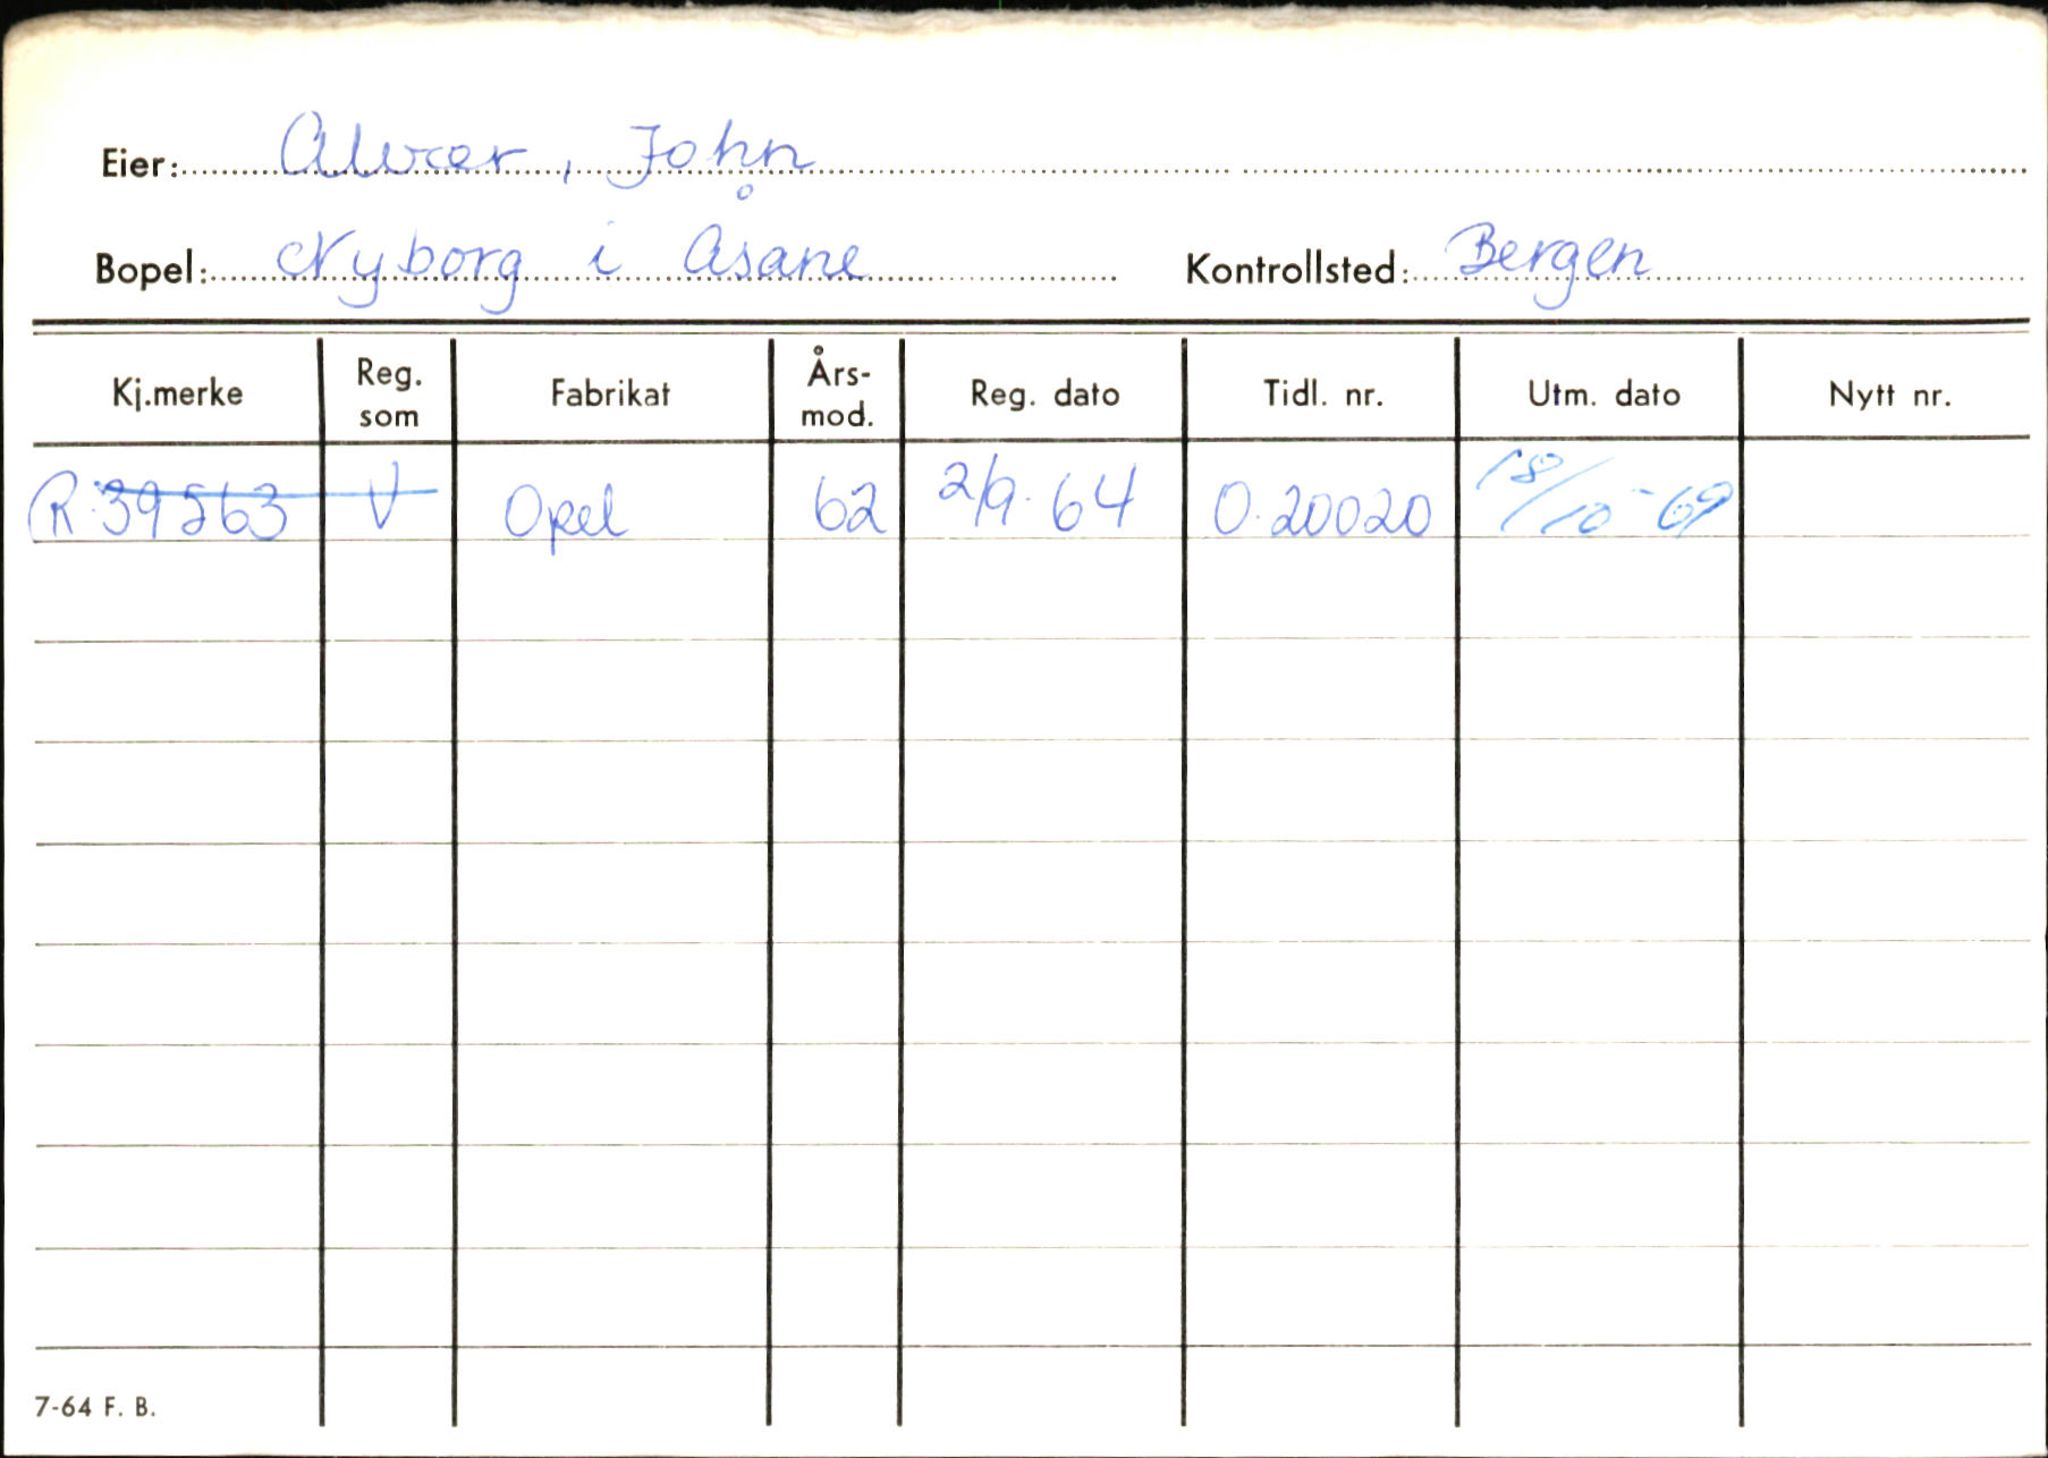 Eier: Alvær, John
Bopel: Nyborg i Åsane Kontrollsted: Bergen
Kj.merke Reg. som Fabrikat Års-mod. Reg. dato Tidl. nr. Utm. dato Nytt nr.
R.39563 V Opel 62 2/9-64 O.20020 18/10-69
7-64 F. B.